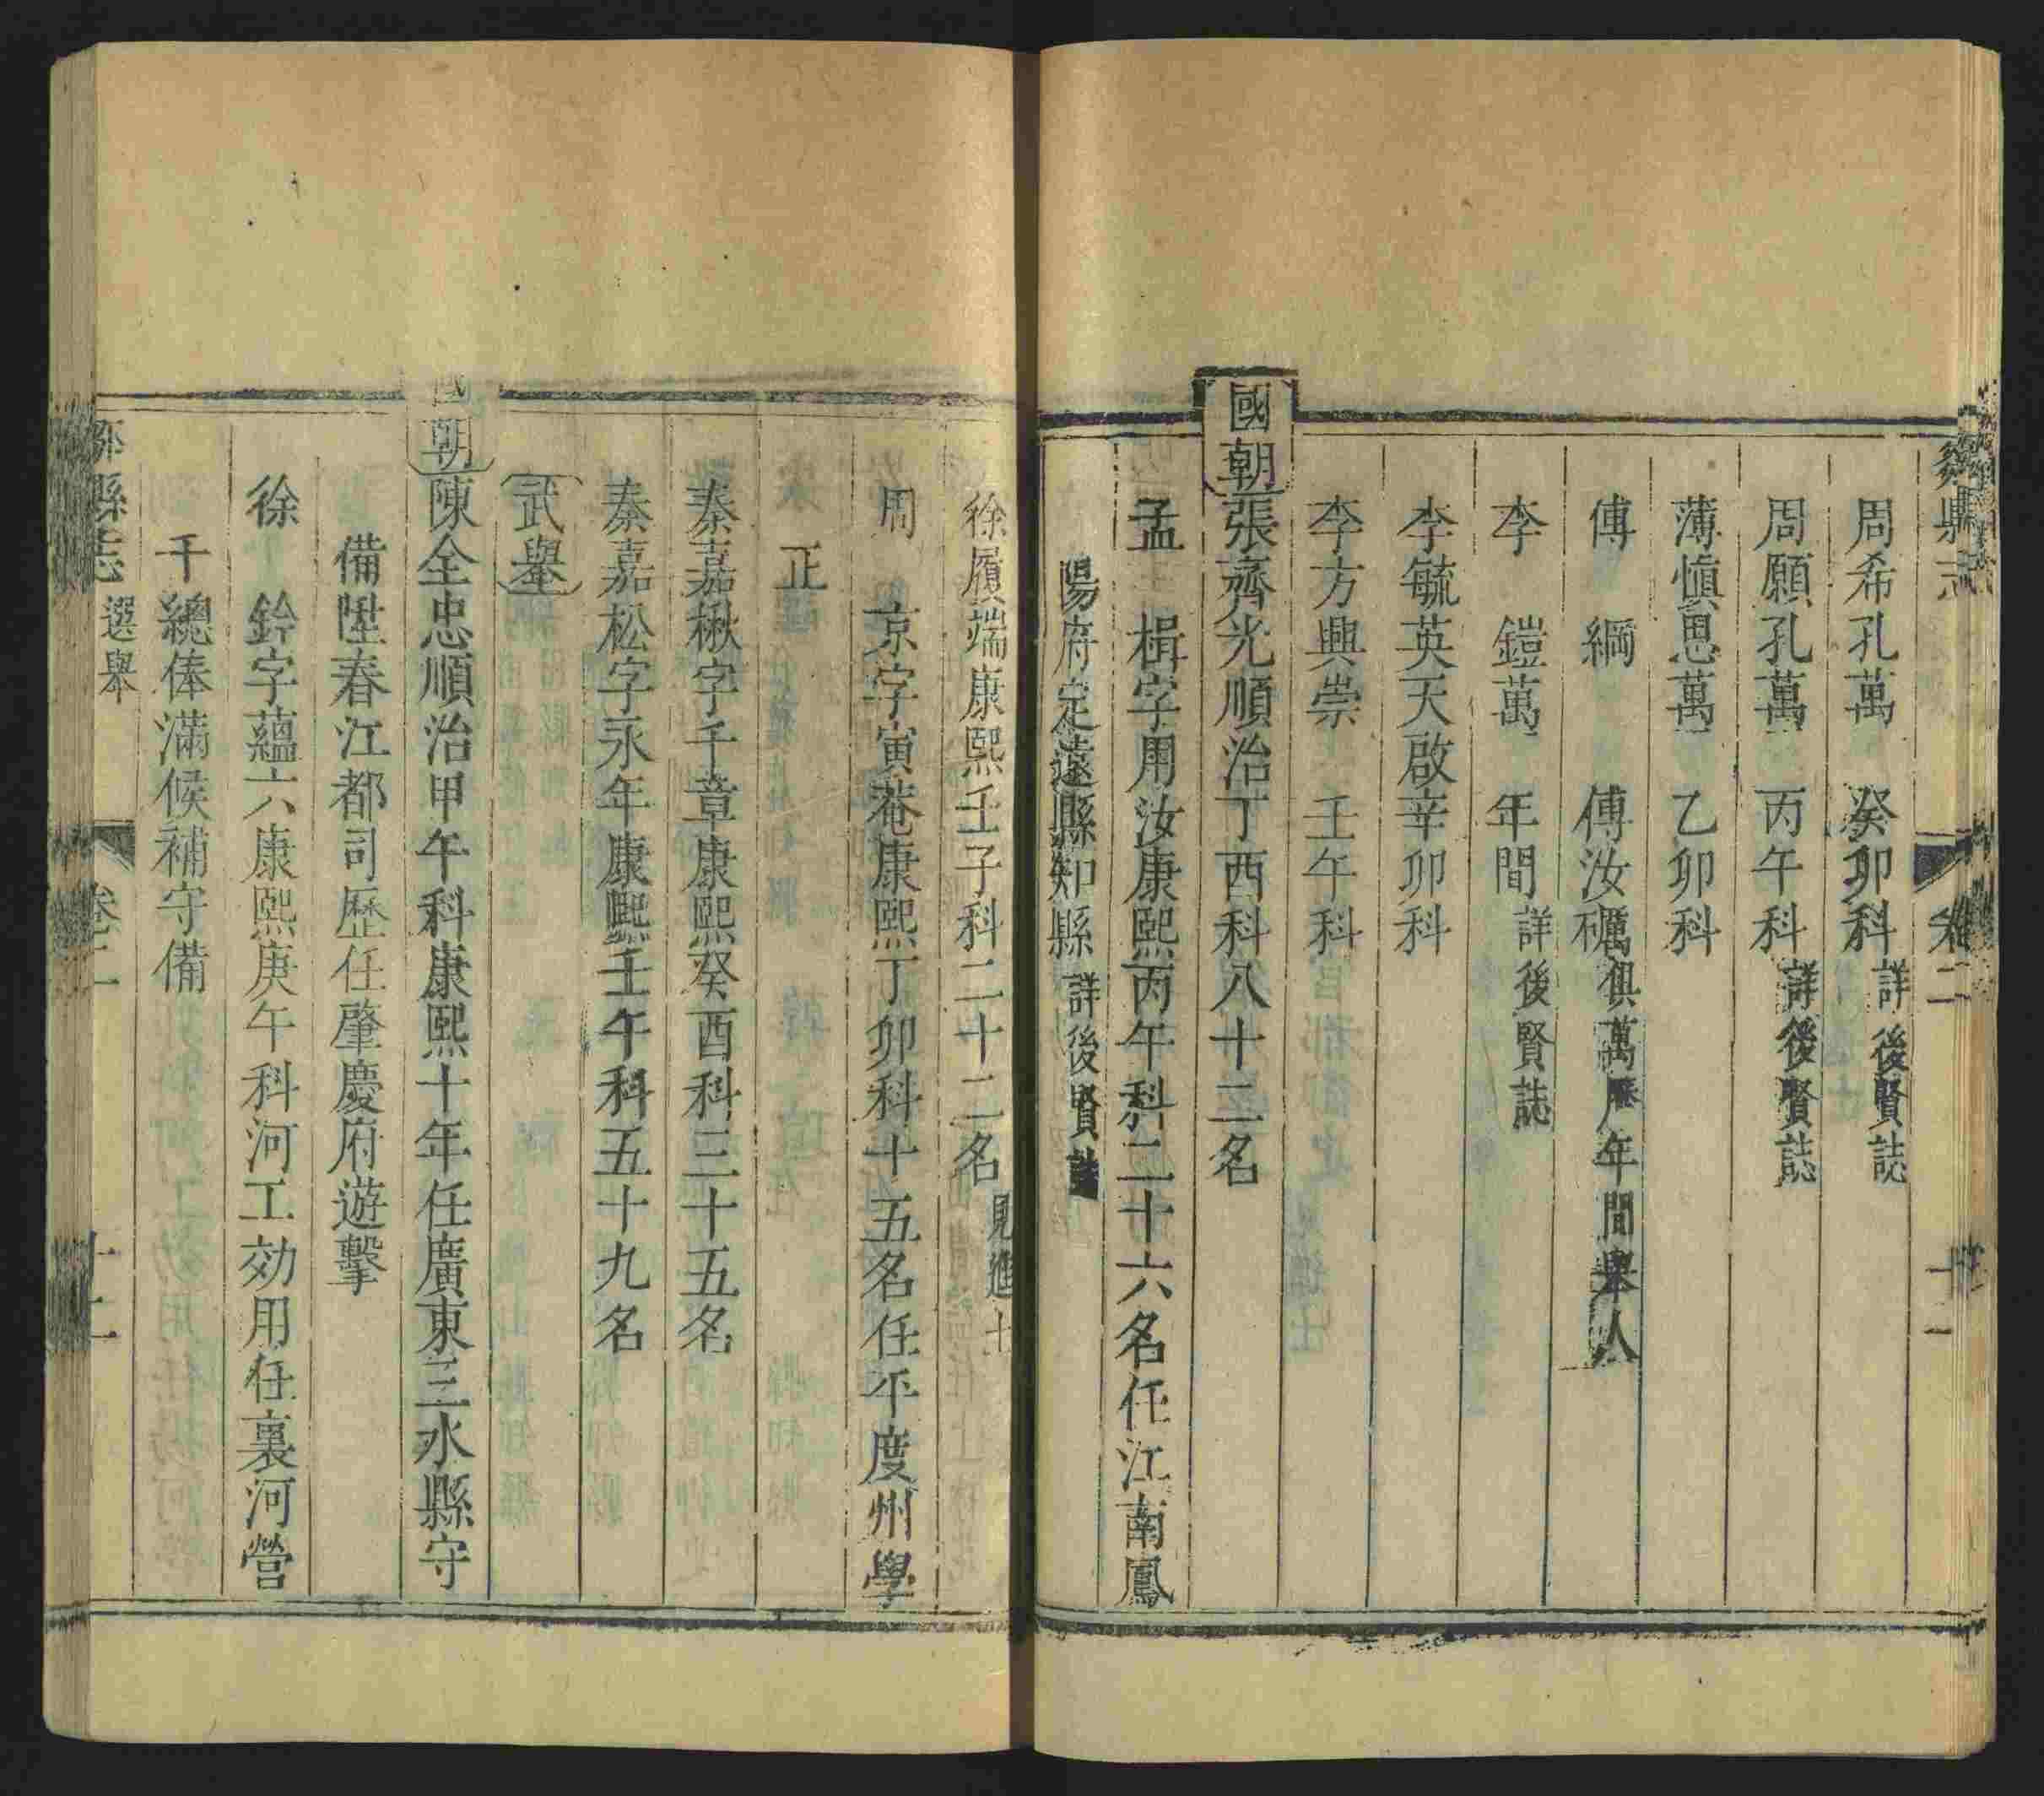 縣志 卷二
周希孔萬 癸卯科詳後賢誌
周願孔萬 丙午科詳後賢誌
薄愼思萬 乙卯科
傅 綱 傅汝礪俱萬曆年間舉人
李 鎧萬 年間詳後賢誌
李毓英天啟辛卯科
李方興崇 壬午科
國朝張齊光順治丁酉科八十二名
孟 楫字用汝康熙丙午科二十六名任江南鳳
陽府定遠縣知縣詳後賢誌
徐履端康熙壬子科二十二名見進士
周 京字寅菴康熙丁卯科十五名任平度州學
正
秦嘉楸字千章康熙癸酉科三十五名
秦嘉松字永年康熙壬午科五十九名
武舉
國朝陳全忠順治甲午科康熙十年任廣東三水縣守
備陞春江都司歷任肇慶府遊擊
徐 鈴字蘊六康熙庚午科河工効用任裏河營
千總俸滿候補守備
縣志 選舉 卷二 十二